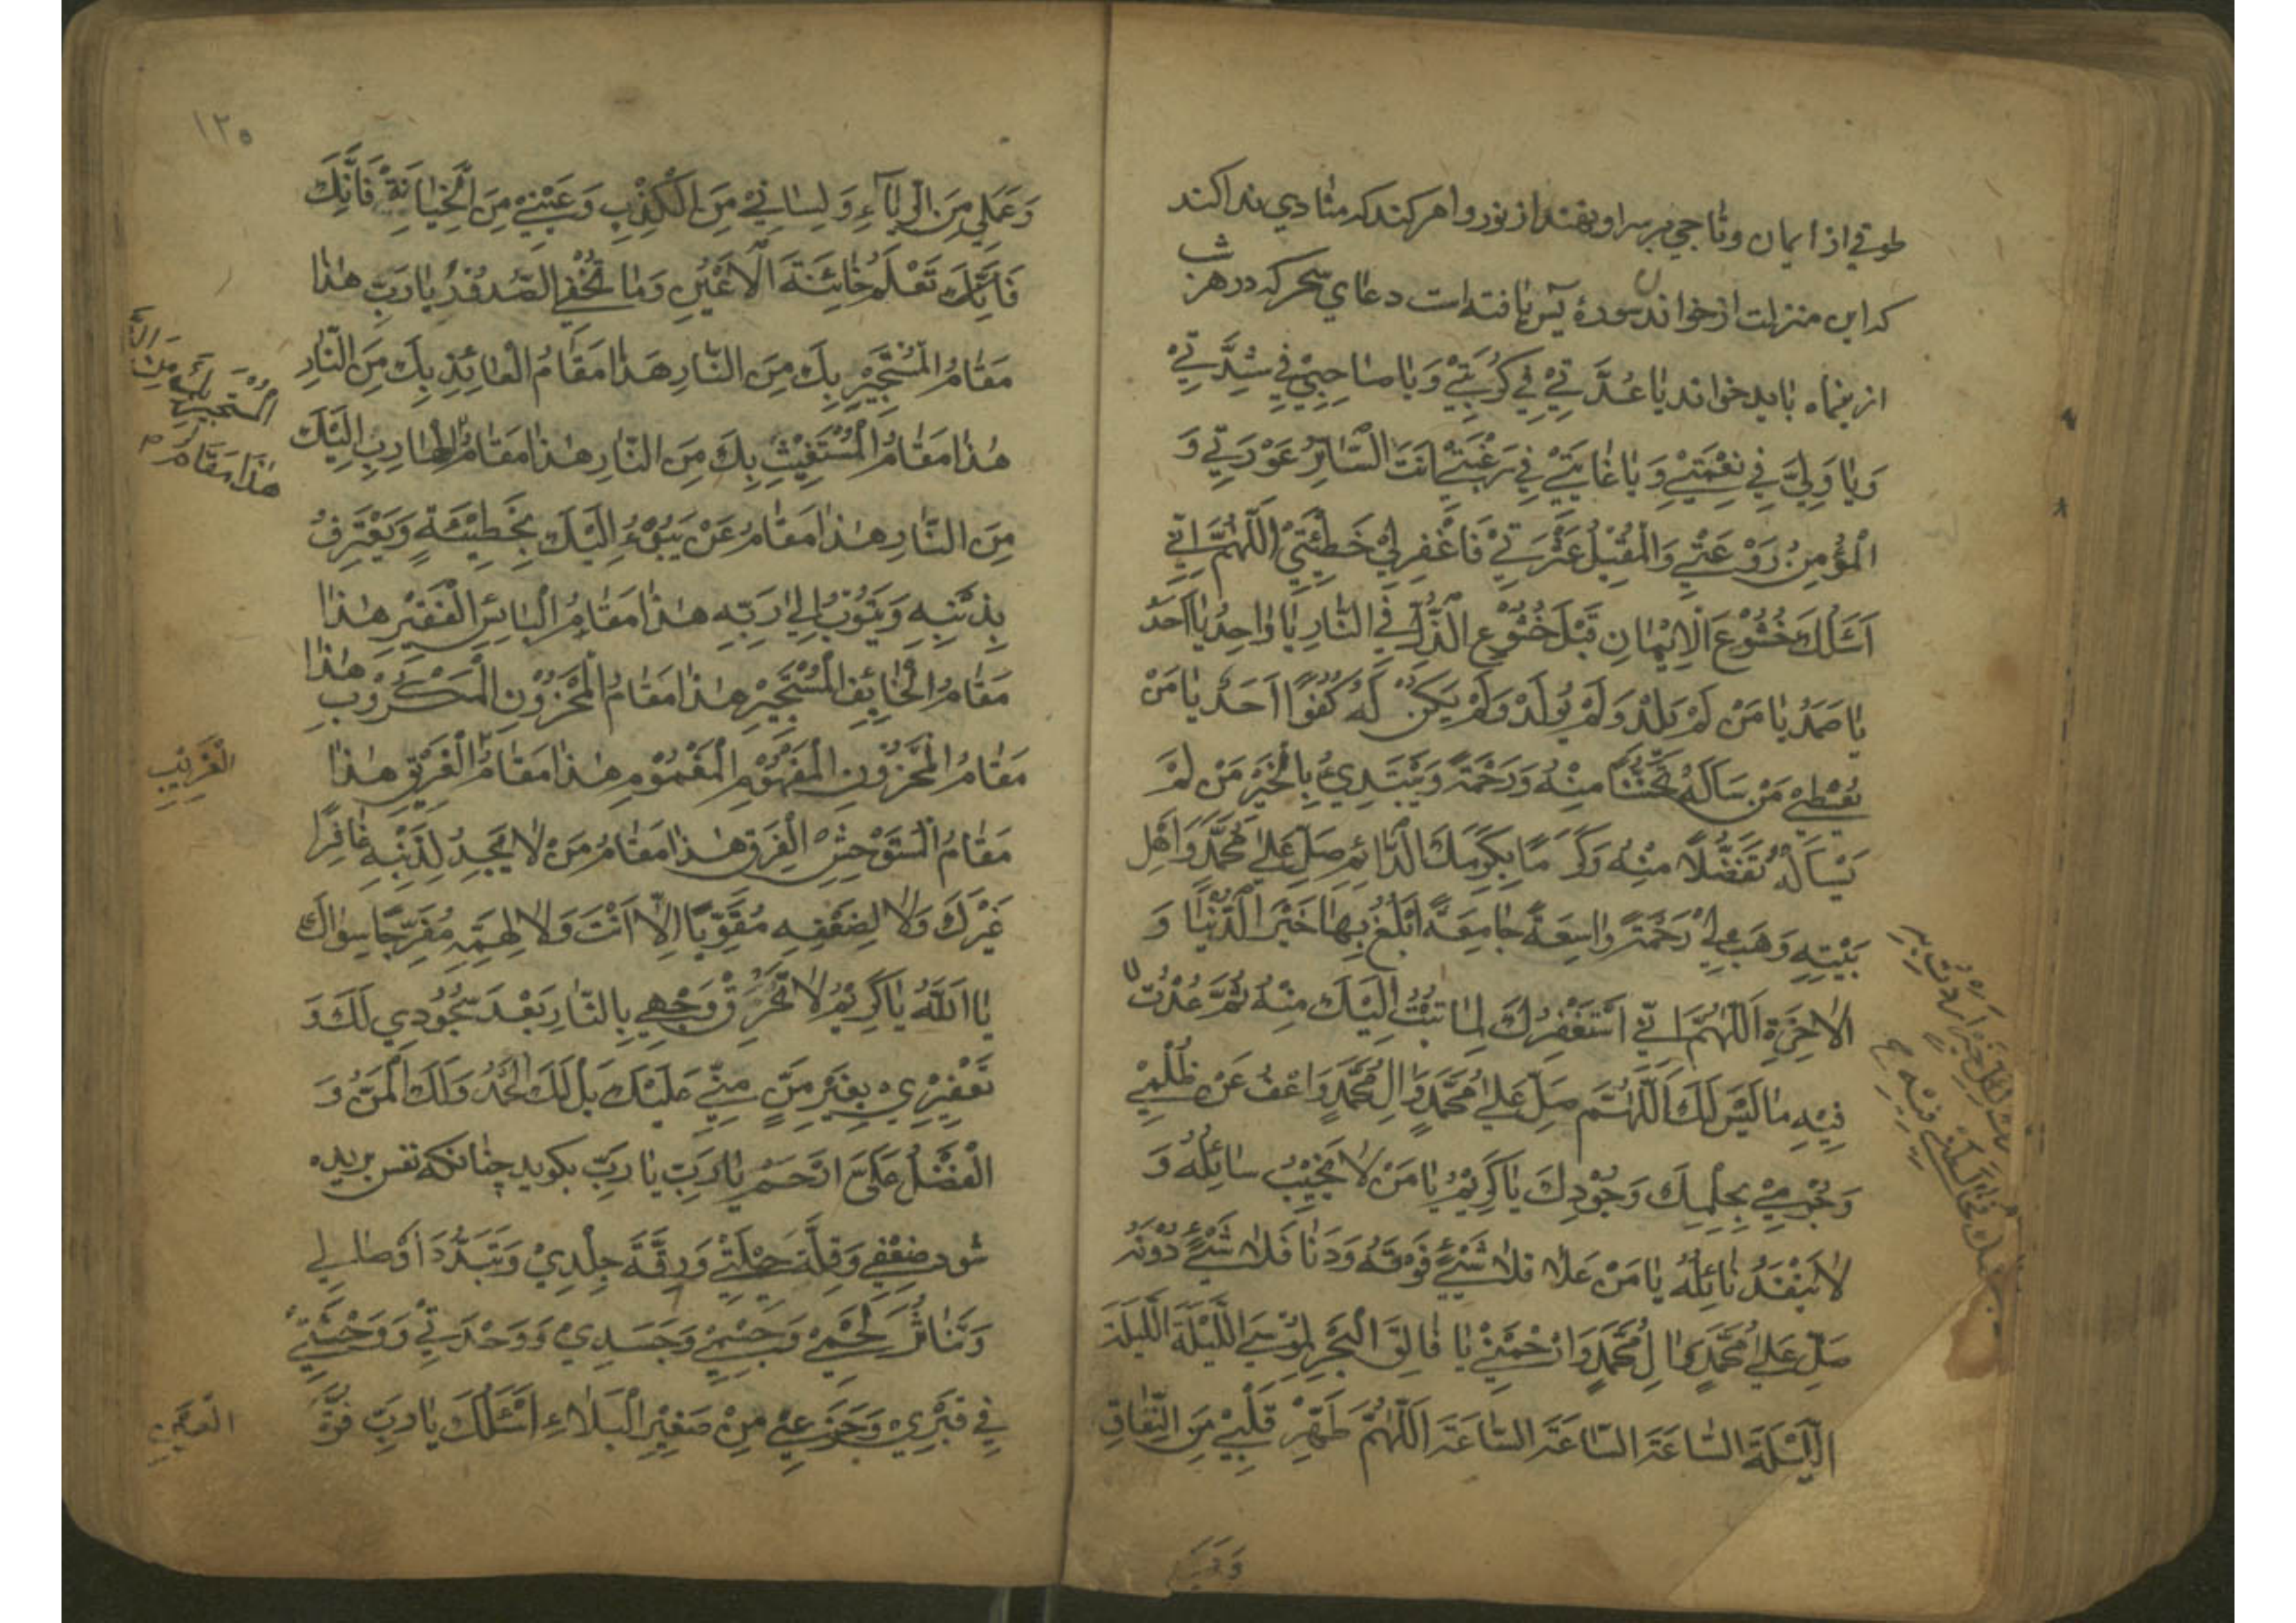 طوقي از ايمان وتاجي بر سر او بنهند از نور وامر كند كه منادي ندا كند
كه اين منزلت از خواندن سورهٔ يس يافته است دعاي سحر كه در هر شب
از ماه بايد خواند يا عُدَّتِيْ فِيْ كُرْبَتِيْ وَيا صاحِبِيْ فِي شِدَّتِيْ
وَيا وَلِيّ فِي نِعْمَتِيْ وَ يا غايَتِيْ فِي رَغْبَتِيْ اَنْتَ السّاتِرُ عَوْرَتِي وَ
الْمُؤْمِنُ رَوْعَتِي وَالْمُقِيْلُ عَثْرَتِيْ فَاغْفِرْ لِيْ خَطِيْئَتِيْ اَللّهُمَّ اِنِّي
اَسْئَلُكَ خُشُوْعَ الْاِيْمانِ قَبْلَ خُشُوْعِ الذُّلِّ فِي النّارِ يا واحِدُ يا اَحَدُ
يا صَمَدُ يا مَنْ لَمْ يَلِدْ وَلَمْ يُوْلَدْ وَلَمْ يَكُنْ لَهُ كُفُوًا اَحَدٌ يا مَنْ
يُعْطِيْ مَنْ سَاَلَهُ تَحَنُّنًا مِنْهُ وَرَحْمَةً وَيَبْتَدِيُ بِالْخَيْرِ مَنْ لَمْ
يَسْاَلْهُ تَفَضُّلاً مِنْهُ وَكَرَمًا بِكَرَمِكَ الدّائِمِ صَلِّ عَلي مُحَمَّدٍ وَاَهْلِ
بَيْتِهِ وَهَبْ لِيْ رَحْمَةً واسِعَةً جامِعَةً اَبْلُغُ بِها خَيْرَ الدُّنْيا وَ
الاخِرَةِ اَللّهُمَّ اِنِّي اَسْتَغْفِرُكَ لِما تُبْتُ اِلَيْكَ مِنْهُ ثُمَّ عُدْتُ
فِيْهِ ما لَيْسَ لَكَ اَللّهُمَّ صَلِّ عَلي مُحَمَّدٍ وَالِ مُحَمَّدٍ وَاعْفُ عَنْ ظُلْمِيْ
وَجُرْمِيْ بِحِلْمِكَ وَجُوْدِكَ يا كَرِيْمُ يا مَنْ لا يُخَيِّبُ سائِلُهُ وَ
لا يَنْفَدُ نائِلُهُ يا مَنْ عَلا فَلا شَيْءٌ فَوْقَهُ وَدَنا فَلا شَيْءٌ دُوْنَهُ
صَلِّ عَلي مُحَمَّدٍ وَالِ مُحَمَّدٍ وَارْحَمْنِيْ يا فالِقَ الْبَحْرِ لِمُوْسي اللَّيْلَةَ اللَّيْلَةَ
اللَّيْلَةَ السّاعَةَ السّاعَةَ السّاعَةَ اَللّهُمَّ طَهِّرْ قَلْبِيْ مِنَ النِّفاقِ
١٢٥
وَعَمَلِي مِنَ الرِّياءِ وَلِسانِيْ مِنَ الْكِذْبِ وَعَيْنِيْ مِنَ الْخِيانَةِ فَاِنَّكَ
فَاِنَّكَ تَعْلَمُ خائِنَةَ الْاَعْيُنِ وَما تُخْفِي الصُّدُوْرُ يا رَبِّ هذا
مَقامُ الْمُسْتَجِيْرِ بِكَ مِنَ النّارِ هذا مَقامُ الْعائِذِ بِكَ مِنَ النّارِ
هذا مَقامُ الْمُسْتَغِيْثِ بِكَ مِنَ النّارِ هذا مَقامُ الْهارِبِ اِلَيْكَ
مِنَ النّارِ هذا مَقامُ مَنْ يَبُوْءُ اِلَيْكَ بِخَطِيْئَةٍ وَيَعْتَرِفُ
بِذَنْبِهِ وَيَتُوْبُ اِلي رَبِّهِ هذا مَقامُ الْبائِسِ الْفَقِيْرِ هذا
مَقامُ الْخائِفِ الْمُسْتَجِيْرِ هذا مَقامُ الْمَحْزُوْنِ الْمَكْرُوْبِ هذا
مَقامُ الْمَحْزُوْنِ الْمَهْمُوْمِ الْمَغْمُوْمِ هذا مَقامُ الْغَرِيْقِ هذا
مَقامُ الْمُسْتَوْحِشِ الْفَرِقِ هذا مَقامُ مَنْ لا يَجِدُ لِذَنْبِهِ غافِرًا
غَيْرَكَ وَلا لِضَعْفِهِ مُقَوِّيًا اِلاّ اَنْتَ وَلا لِهَمِّهِ مُفَرِّجًا سِواكَ
يا اَللّهُ يا كَرِيْمُ لا تُحْرِقْ وَجْهِي بِالنّارِ بَعْدَ سُجُوْدِي لَكَ وَ
تَعْفِيْرِي بِغَيْرِ مَنٍّ مِنِّي عَلَيْكَ بَلْ لَكَ الْحَمْدُ وَلَكَ الْمَنُّ وَ
الْفَضْلُ عَلَيَّ اِرْحَمْ يا رَبِّ يا رَبِّ بكويد چنانكه نفس بريده
شود ضَعْفِي وَقِلَّةَ حِيْلَتِيْ وَرِقَّةَ جِلْدِيْ وَتَبَدُّدَ اَوْصالِي
وَتَناثُرَ لَحْمِيْ وَجِسْمِيْ وَجَسَدِيْ وَوَحْدَتِيْ وَوَحْشَتِيْ
فِي قَبْرِيْ وَجَزَعِيْ مِنْ صَغِيْرِ الْبَلاءِ اَسْئَلُكَ يا رَبِّ قُرَّةَ
هذا مَقامُ
الْغَرِيْبِ